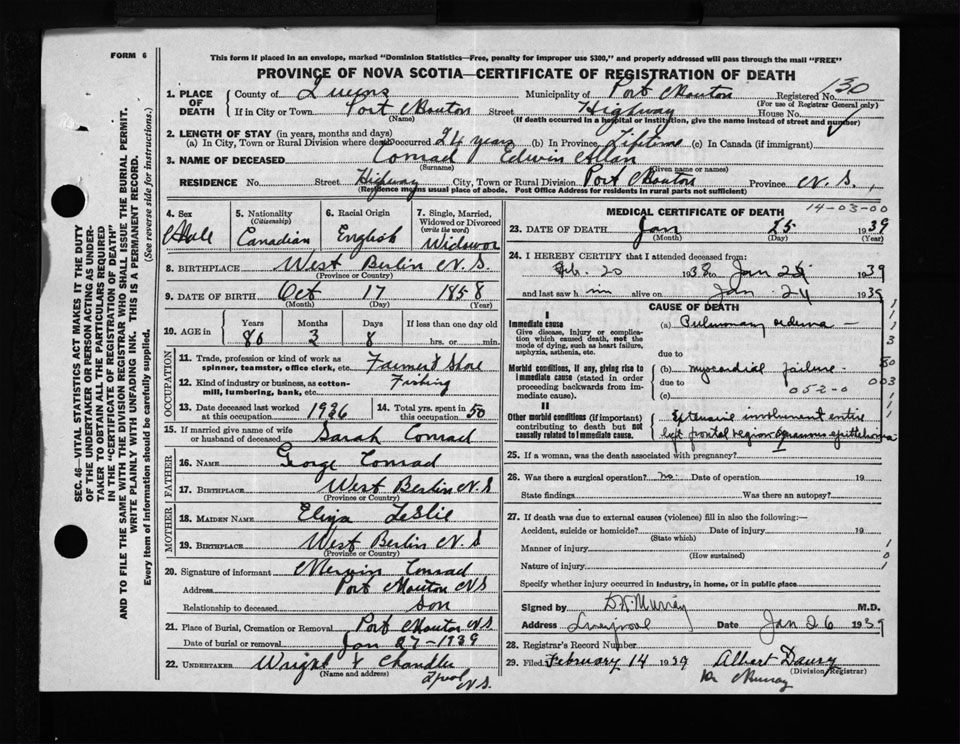 FORM 6
This form if placed in an envelope, marked "Dominion Statistics—Free, penalty for improper use $300," and properly addressed will pass through the mail "FREE"
PROVINCE OF NOVA SCOTIA—CERTIFICATE OF REGISTRATION OF DEATH
1. PLACE OF DEATH County of Queens Municipality of Port Mouton Registered No. 130
(For use of Registrar General only)
If in City or Town Port Mouton Street Highway House No.
(Name) (If death occurred in a hospital or institution, give the name instead of street and number)
2. LENGTH OF STAY (in years, months and days)
(a) In City, Town or Rural Division where death occurred 24 years (b) In Province Lifetime (c) In Canada (if immigrant)
3. NAME OF DECEASED Conrad Edwin Allan
(Surname) (Given name or names)
RESIDENCE No. Street Highway City, Town or Rural Division Port Mouton Province N.S.,
(Residence means usual place of abode. Post Office Address for residents in rural parts not sufficient)
4. Sex Male
5. Nationality (Citizenship) Canadian
6. Racial Origin English
7. Single, Married, Widowed or Divorced (write the word) Widower
8. BIRTHPLACE West Berlin N.S.
(Province or Country)
9. DATE OF BIRTH Oct 17 1858
(Month) (Day) (Year)
10. AGE in Years 80 Months 3 Days 8 If less than one day old hrs. or min.
OCCUPATION
11. Trade, profession or kind of work as spinner, teamster, office clerk, etc. Farmer & Shore
12. Kind of industry or business, as cotton-mill, lumbering, bank, etc. Fishing
13. Date deceased last worked at this occupation 1936
14. Total yrs. spent in this occupation 50
15. If married give name of wife or husband of deceased Sarah Conrad
FATHER
16. NAME George Conrad
17. BIRTHPLACE West Berlin N.S
(Province or Country)
MOTHER
18. MAIDEN NAME Eliza Leslie
19. BIRTHPLACE West Berlin N.S
(Province or Country)
20. Signature of informant Mervin Conrad
Address Port Mouton NS
Relationship to deceased Son
21. Place of Burial, Cremation or Removal Port Mouton NS
Date of burial or removal Jan 27-1939
22. UNDERTAKER Wright & Chandler
(Name and address) Lpool
N.S.
MEDICAL CERTIFICATE OF DEATH
14-03-00
23. DATE OF DEATH Jan 25 1939
(Month) (Day) (Year)
24. I HEREBY CERTIFY that I attended deceased from
Feb. 20 1938 to Jan 25 1939
and last saw him alive on Jan 24 1939
CAUSE OF DEATH
I
Immediate cause (a) Pulmonary edema
Give disease, injury or complication which caused death, not the mode of dying, such as heart failure, asphyxia, asthenia, etc.
due to
Morbid conditions, if any, giving rise to immediate cause (stated in order proceeding backwards from immediate cause).
(b) myocardial failure
due to
(c) 052-0
II
Other morbid conditions (if important) contributing to death but not causally related to immediate cause.
Extensive involvement entire
left frontal region squamous epithelioma
25. If a woman, was the death associated with pregnancy?
26. Was there a surgical operation? no. Date of operation 19
State findings Was there an autopsy?
27. If death was due to external causes (violence) fill in also the following:—
Accident, suicide or homicide? Date of injury 19
(State which)
Manner of injury
(How sustained)
Nature of injury
Specify whether injury occurred in industry, in home, or in public place
Signed by Murray M.D.
Address Liverpool Date Jan 26 1939
28. Registrar's Record Number
29. Filed February 14 1939 Albert
(Division Registrar)
Murray
SEC. 46—VITAL STATISTICS ACT MAKES IT THE DUTY
OF THE UNDERTAKER OR PERSON ACTING AS UNDERTAKER TO OBTAIN ALL THE PARTICULARS REQUIRED
IN THE "CERTIFICATE OF REGISTRATION OF DEATH"
AND TO FILE THE SAME WITH THE DIVISION REGISTRAR WHO SHALL ISSUE THE BURIAL PERMIT.
WRITE PLAINLY WITH UNFADING INK. THIS IS A PERMANENT RECORD.
Every item of information should be carefully supplied. (See reverse side for instructions.)